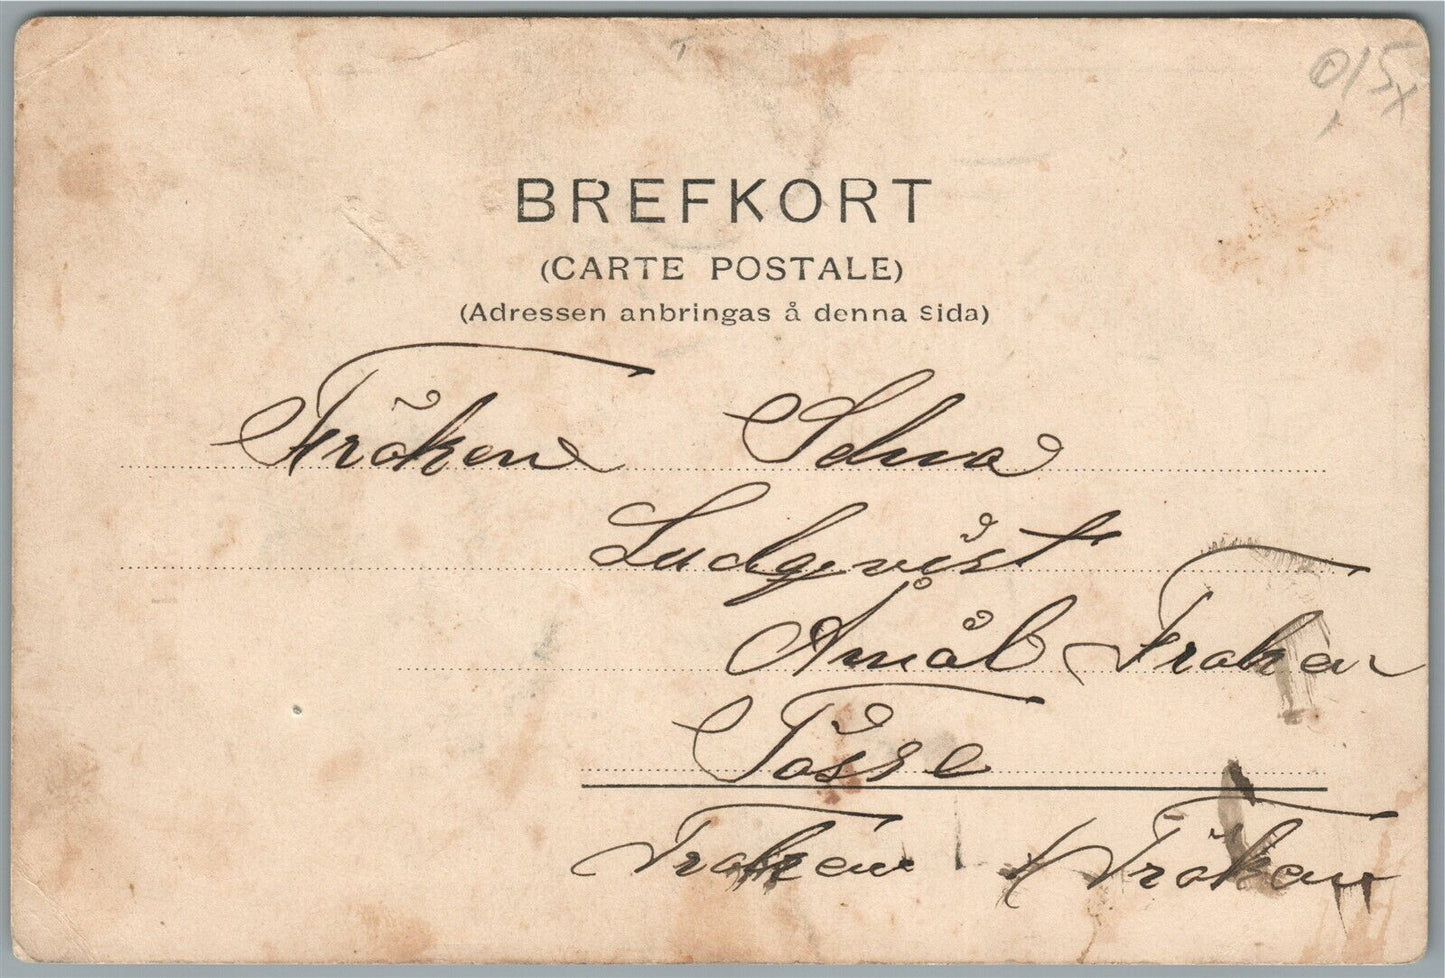 0,15x
BREFKORT
(CARTE POSTALE)
(Adressen anbringas å denna Sida)
Fröken Selma
Ludqvist
Åmål Froken
Tösse
Froken Fröken